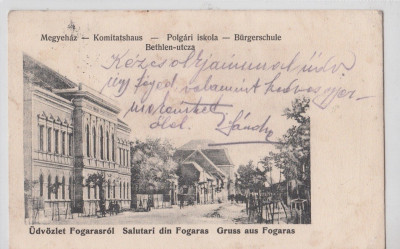 Megyeház — Komitatshaus — Polgári iskola — Bürgerschule
Bethlen-utcza
Kézcsókjaimmal üdv.
úgy téged valamint kedves gyer-
mekeinket
ölel Sándor
Üdvözlet Fogarasról Salutari din Fogaras Gruss aus Fogaras